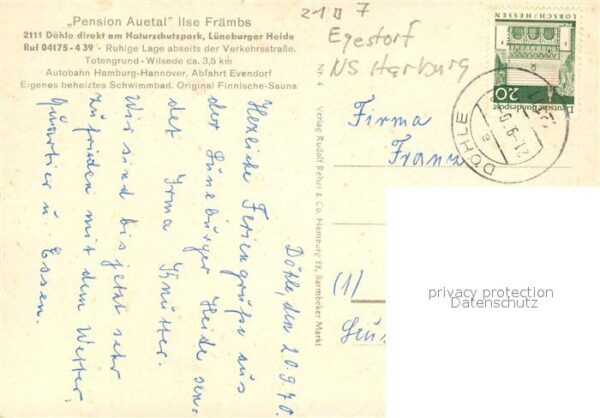 „Pension Auetal" Ilse Främbs
2111 Döhle direkt am Naturschutzpark, Lüneburger Heide
Ruf 04175-439 · Ruhige Lage abseits der Verkehrsstraße.
Totengrund-Wilsede ca. 3,5 km
Autobahn Hamburg-Hannover, Abfahrt Evendorf
Eigenes beheiztes Schwimmbad. Original Finnische-Sauna
Döhle, den 20.9.70
Herzliche Feriengrüße aus
der Lüneburger Heide sen-
det Irma Knutter.
Wir sind bis jetzt sehr
zufrieden mit dem Wetter,
Quartier u. Essen.
Nr. 4 Verlag Rudolf Reher & Co. Hamburg 22, Barmbeker Markt
21 II 7
Egestorf
NS Harburg
LORSCH/HESSEN
Deutsche Bundespost
20
DÖHLE
a
21.9.
Firma
Franz
(1)
privacy protection
Datenschutz